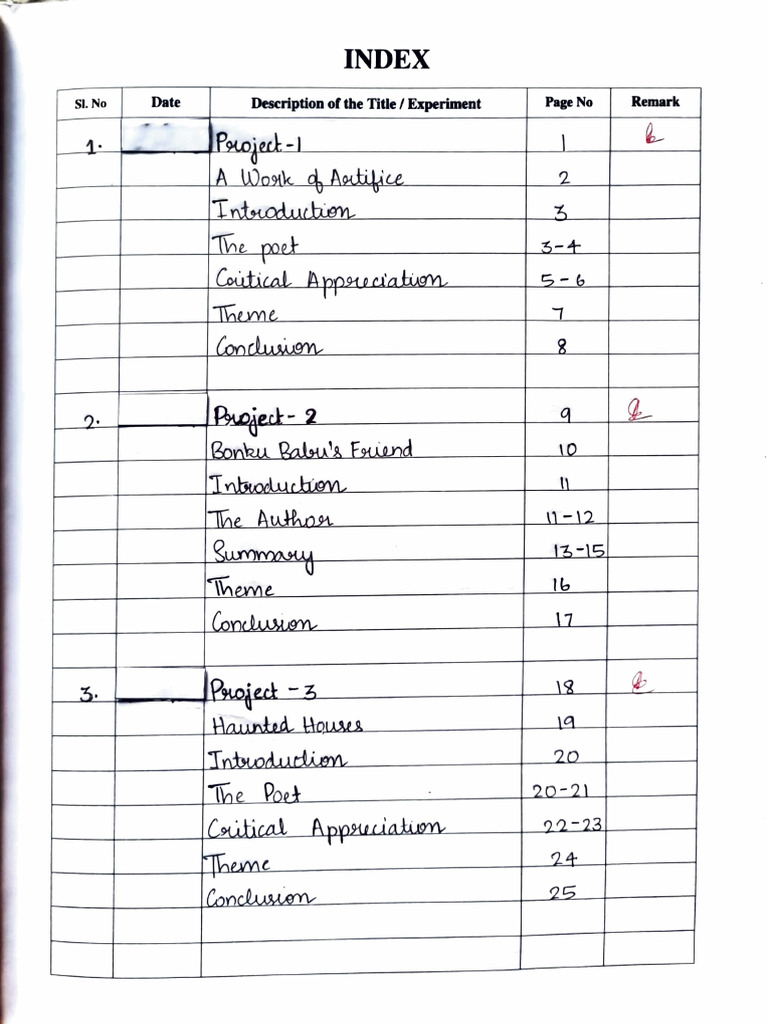 INDEX
Sl. No Date Description of the Title / Experiment Page No Remark
1. Project-1 1
A Work of Artifice 2
Introduction 3
The poet 3-4
Critical Appreciation 5-6
Theme 7
Conclusion 8
2. Project-2 9
Bonku Babu's Friend 10
Introduction 11
The Author 11-12
Summary 13-15
Theme 16
Conclusion 17
3. Project-3 18
Haunted Houses 19
Introduction 20
The Poet 20-21
Critical Appreciation 22-23
Theme 24
Conclusion 25